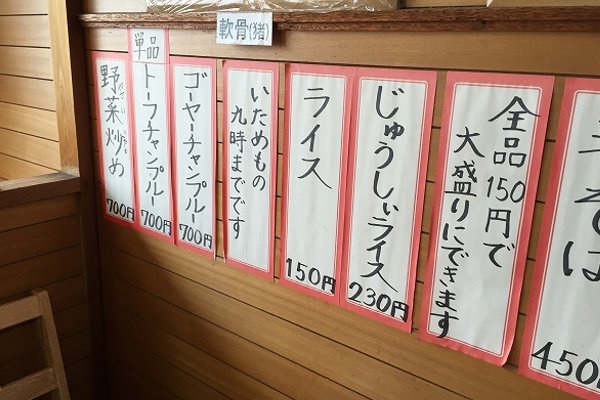 軟骨(猪)
そば
450円
全品150円で
大盛りにできます
じゅうしぃライス
230円
ライス
150円
いためもの
九時までです
ゴーヤーチャンプルー
700円
単品
トーフチャンプルー
700円
野菜炒め
700円